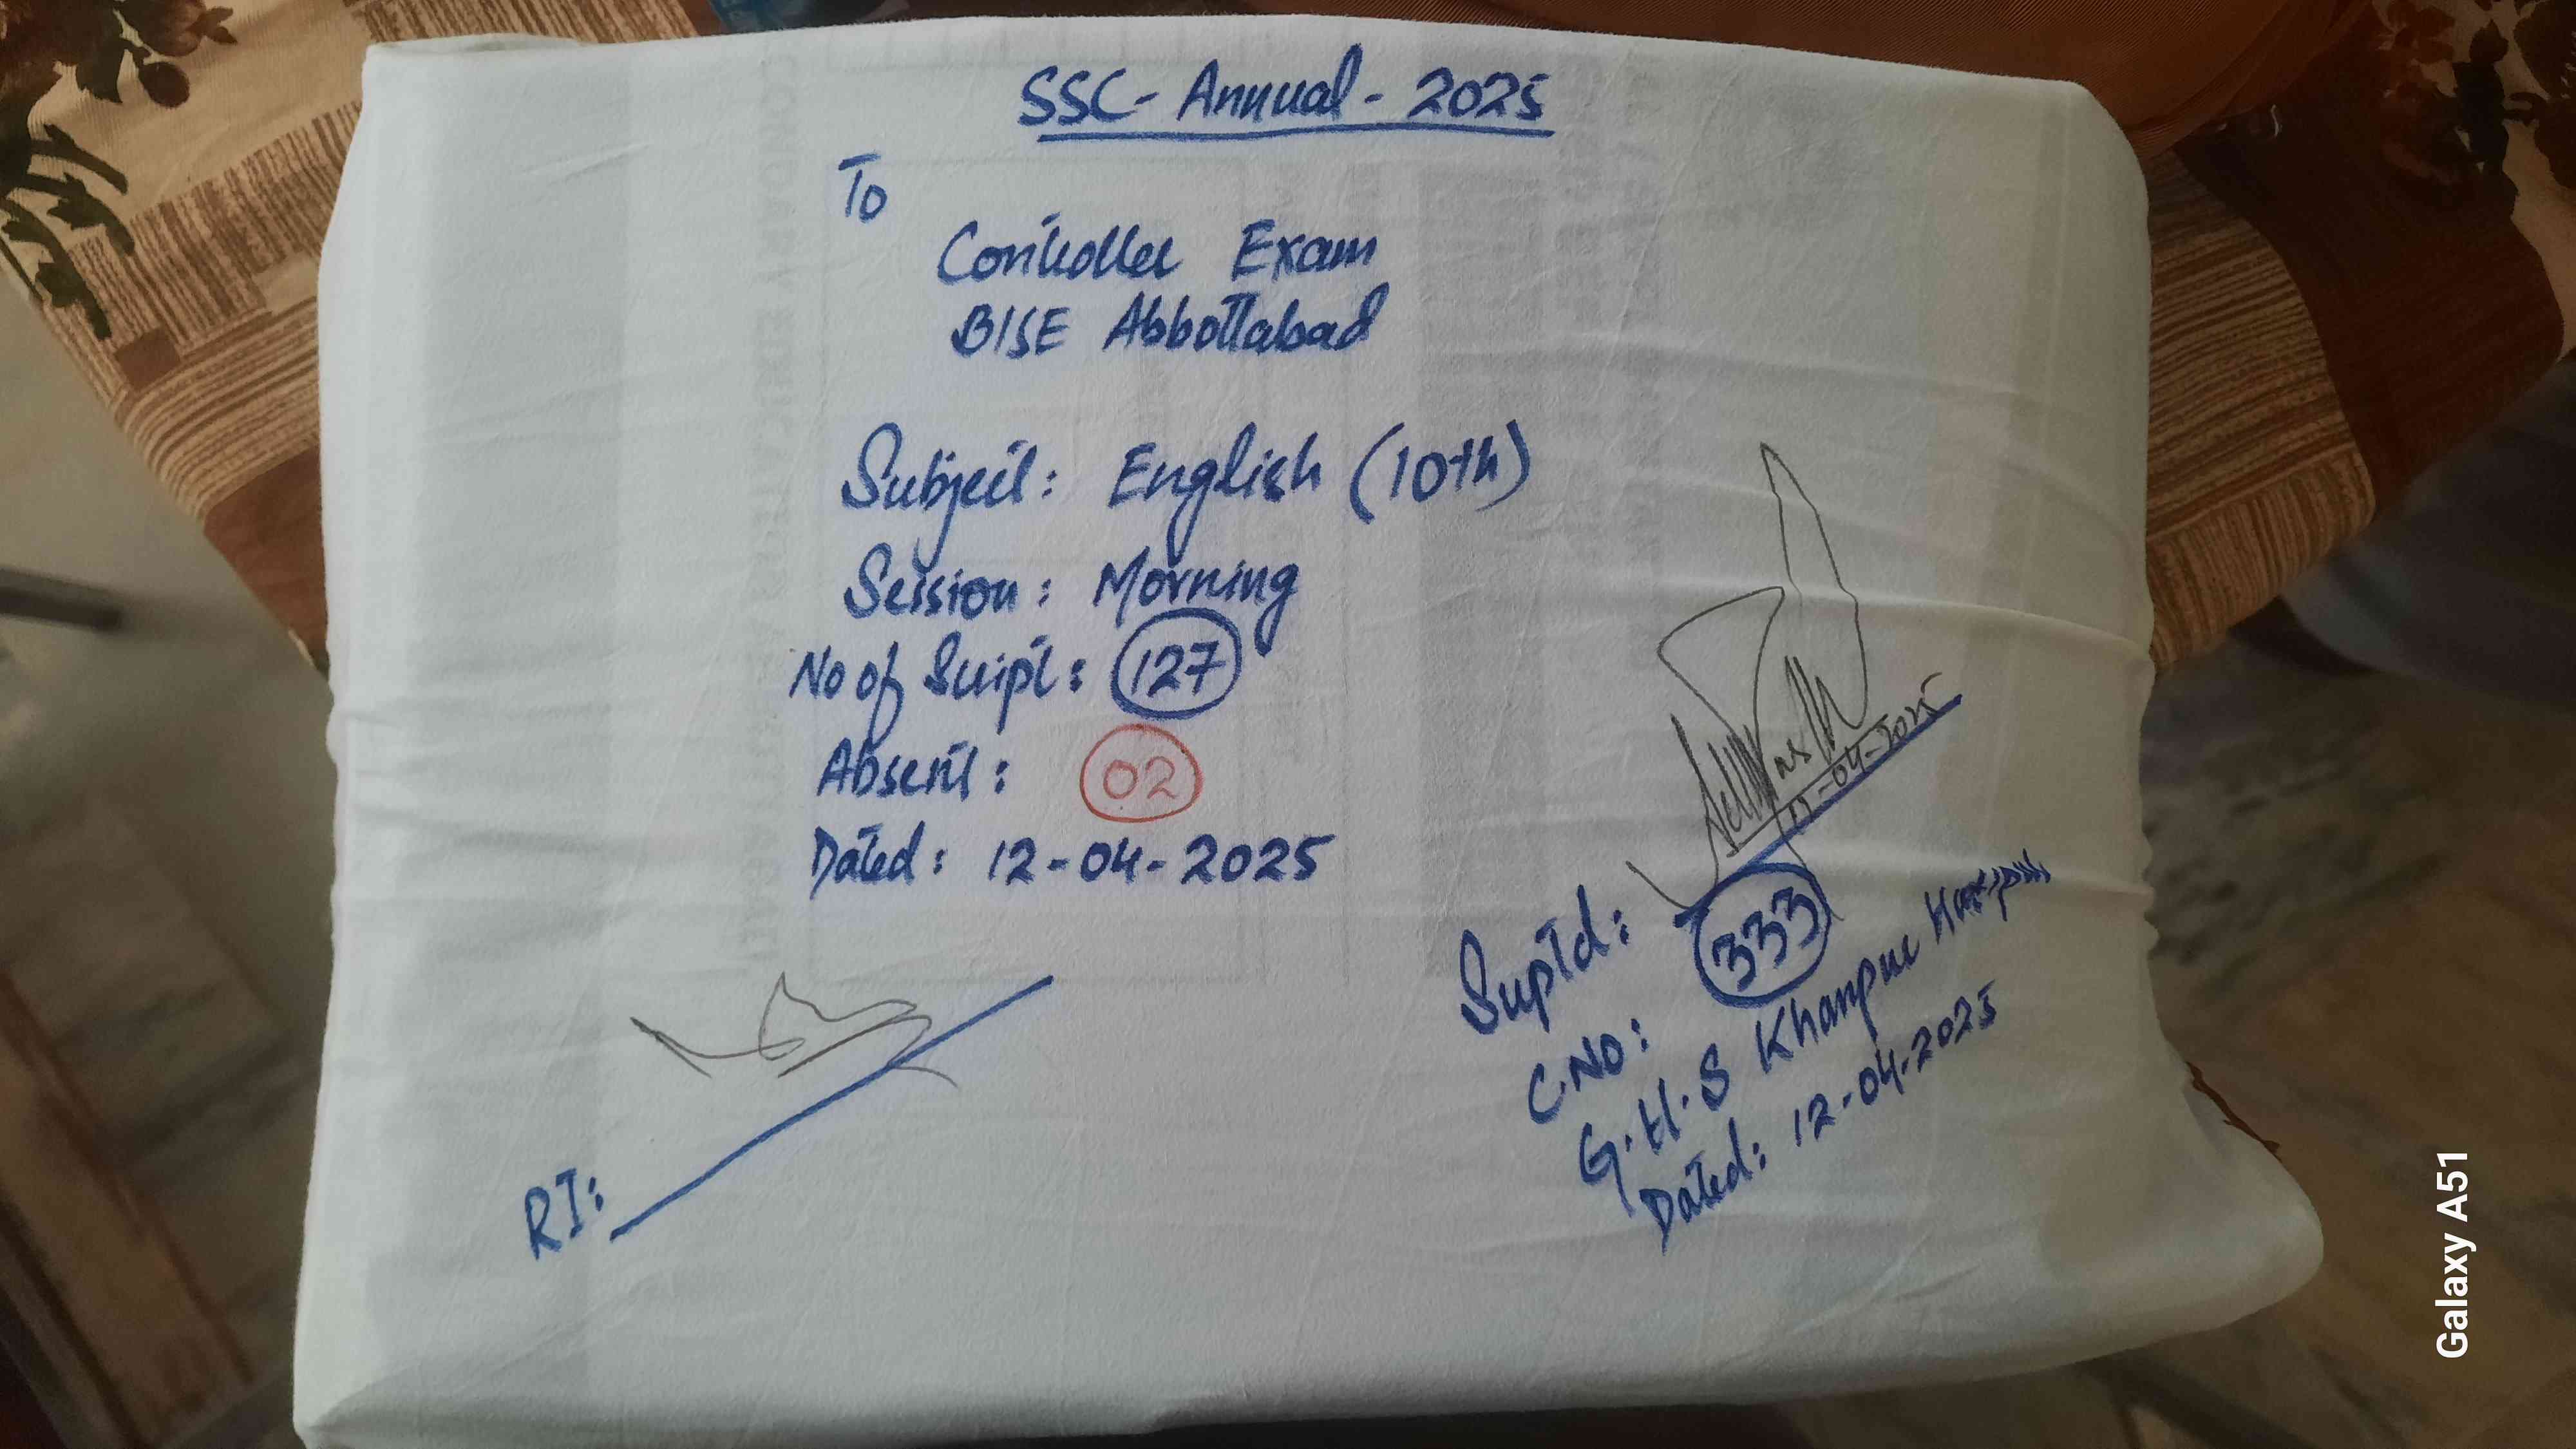 SSC- Annual - 2025
To
Controller Exam
BISE Abbottabad
Subject: English (10th)
Session: Morning
No of Script: 127
Absent: 02
Dated: 12-04-2025
RI:
-04-2025
Suptd:
C.No: 333
G.H.S Khanpur Haripur
Dated: 12-04-2025
Galaxy A51